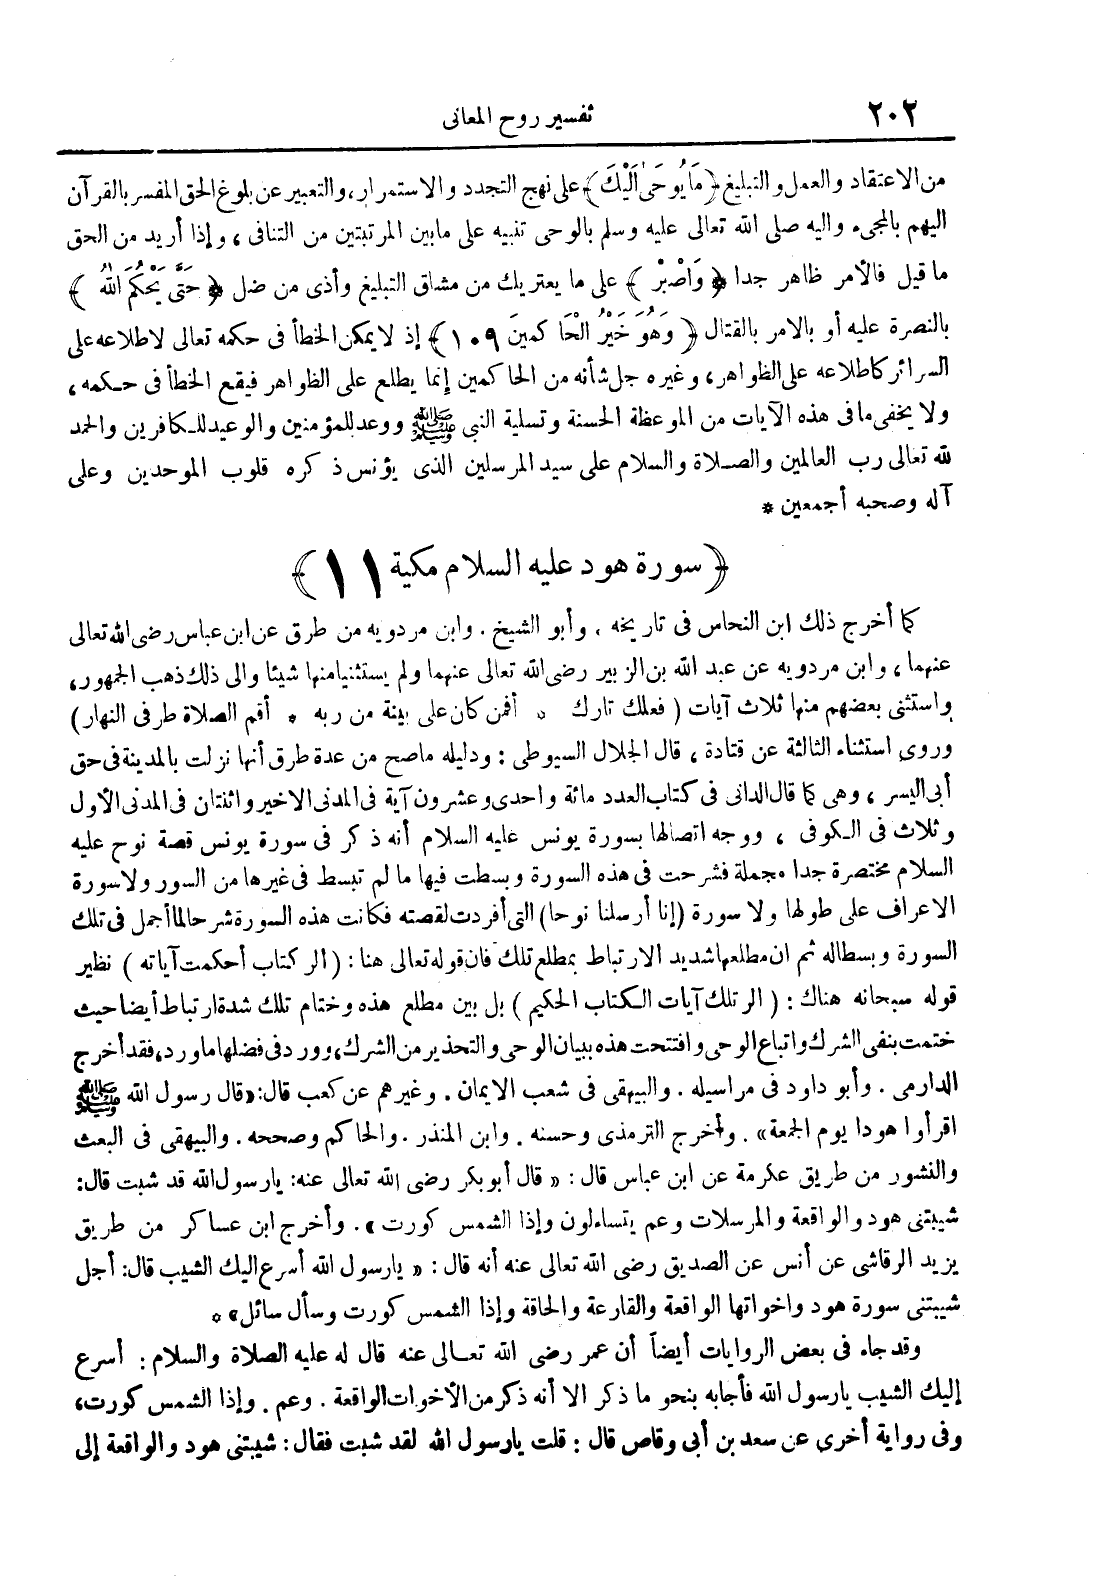 ٢٠٢
تفسير روح المعانى
من الاعتقاد والعمل والتبليغ ﴿مَا يُوحَىٰ إِلَيْكَ﴾ على نهج التجدد والاستمرار، والتعبير عن بلوغ الحق المفسر بالقرآن
اليهم بالمجىء واليه صلى الله تعالى عليه وسلم بالوحى تنبيه على ما بين المرتبتين من التنافى ، وإذا أريد من الحق
ما قيل فالأمر ظاهر جدا ﴿ وَاصْبِرْ ﴾ على ما يعتريك من مشاق التبليغ وأذى من ضل ﴿ حَتَّىٰ يَحْكُمَ اللَّهُ ﴾
بالنصرة عليه أو بالامر بالقتال ﴿ وَهُوَ خَيْرُ الْحَاكمينَ ١٠٩ ﴾ إذ لا يمكن الخطأ فى حكمه تعالى لاطلاعه على
السرائر كاطلاعه على الظواهر، وغيره جل شأنه من الحاكمين إنما يطلع على الظواهر فيقع الخطأ فى حكمه ،
ولا يخفى ما فى هذه الآيات من الموعظة الحسنة وتسلية النبى ﷺ ووعد للمؤمنين والوعيد للكافرين والحمد
لله تعالى رب العالمين والصلاة والسلام على سيد المرسلين الذى يؤنس ذكره قلوب الموحدين وعلى
آله وصحبه أجمعين *
﴿ سورة هود عليه السلام مكية ١١ ﴾
كما أخرج ذلك ابن النحاس فى تاريخه ، وأبو الشيخ . وابن مردويه من طرق عن ابن عباس رضى الله تعالى
عنهما ، وابن مردويه عن عبد الله بن الزبير رضى الله تعالى عنهما ولم يستثنيا منها شيئا والى ذلك ذهب الجمهور،
واستثنى بعضهم منها ثلاث آيات ( فعلك تارك * أفمن كان على بينة من ربه * أقم الصلاة طرفى النهار)
وروى استثناء الثالثة عن قتادة ، قال الجلال السيوطى : ودليله ماصح من عدة طرق أنها نزلت بالمدينة فى حق
أبى اليسر ، وهى كما قال الدانى فى كتاب العدد مائة واحدى وعشرون آية فى المدنى الاخير واثنتان فى المدنى الأول
وثلاث فى الكوفى ، ووجه اتصالها بسورة يونس عليه السلام أنه ذكر فى سورة يونس قصة نوح عليه
السلام مختصرة جدا مجملة فشرحت فى هذه السورة وبسطت فيها ما لم تبسط فى غيرها من السور ولا سورة
الاعراف على طولها ولا سورة (إنا أرسلنا نوحا) التى أفردت لقصته فكانت هذه السورة شرحا لما أجمل فى تلك
السورة وبسطا له ثم ان مطلعها شديد الارتباط بمطلع تلك فان قوله تعالى هنا : ( الر كتاب أحكمت آياته ) نظير
قوله سبحانه هناك : ( الر تلك آيات الكتاب الحكيم ) بل بين مطلع هذه وختام تلك شدة ارتباط أيضا حيث
ختمت بنفى الشرك واتباع الوحى وافتتحت هذه ببيان الوحى والتحذير من الشرك، وورد فى فضلها ما ورد، فقد أخرج
الدارمى . وأبو داود فى مراسيله . والبيهقى فى شعب الايمان . وغيرهم عن كعب قال: «قال رسول الله ﷺ
اقرأوا هودا يوم الجمعة» . وأخرج الترمذى وحسنه . وابن المنذر . والحاكم وصححه . والبيهقى فى البعث
والنشور من طريق عكرمة عن ابن عباس قال : « قال أبو بكر رضى الله تعالى عنه: يارسول الله قد شبت قال:
شيبتنى هود والواقعة والمرسلات وعم يتساءلون وإذا الشمس كورت » . وأخرج ابن عساكر من طريق
يزيد الرقاشى عن أنس عن الصديق رضى الله تعالى عنه أنه قال : « يارسول الله أسرع اليك الشيب قال: أجل
شيبتنى سورة هود واخواتها الواقعة والقارعة والحاقة وإذا الشمس كورت وسأل سائل» *
وقد جاء فى بعض الروايات أيضاً أن عمر رضى الله تعالى عنه قال له عليه الصلاة والسلام : أسرع
إليك الشيب يارسول الله فأجابه بنحو ما ذكر الا أنه ذكر من الأخوات الواقعة . وعم . وإذا الشمس كورت،
وفى رواية أخرى عن سعد بن أبى وقاص قال : قلت يارسول الله لقد شبت فقال : شيبتنى هود والواقعة إلى